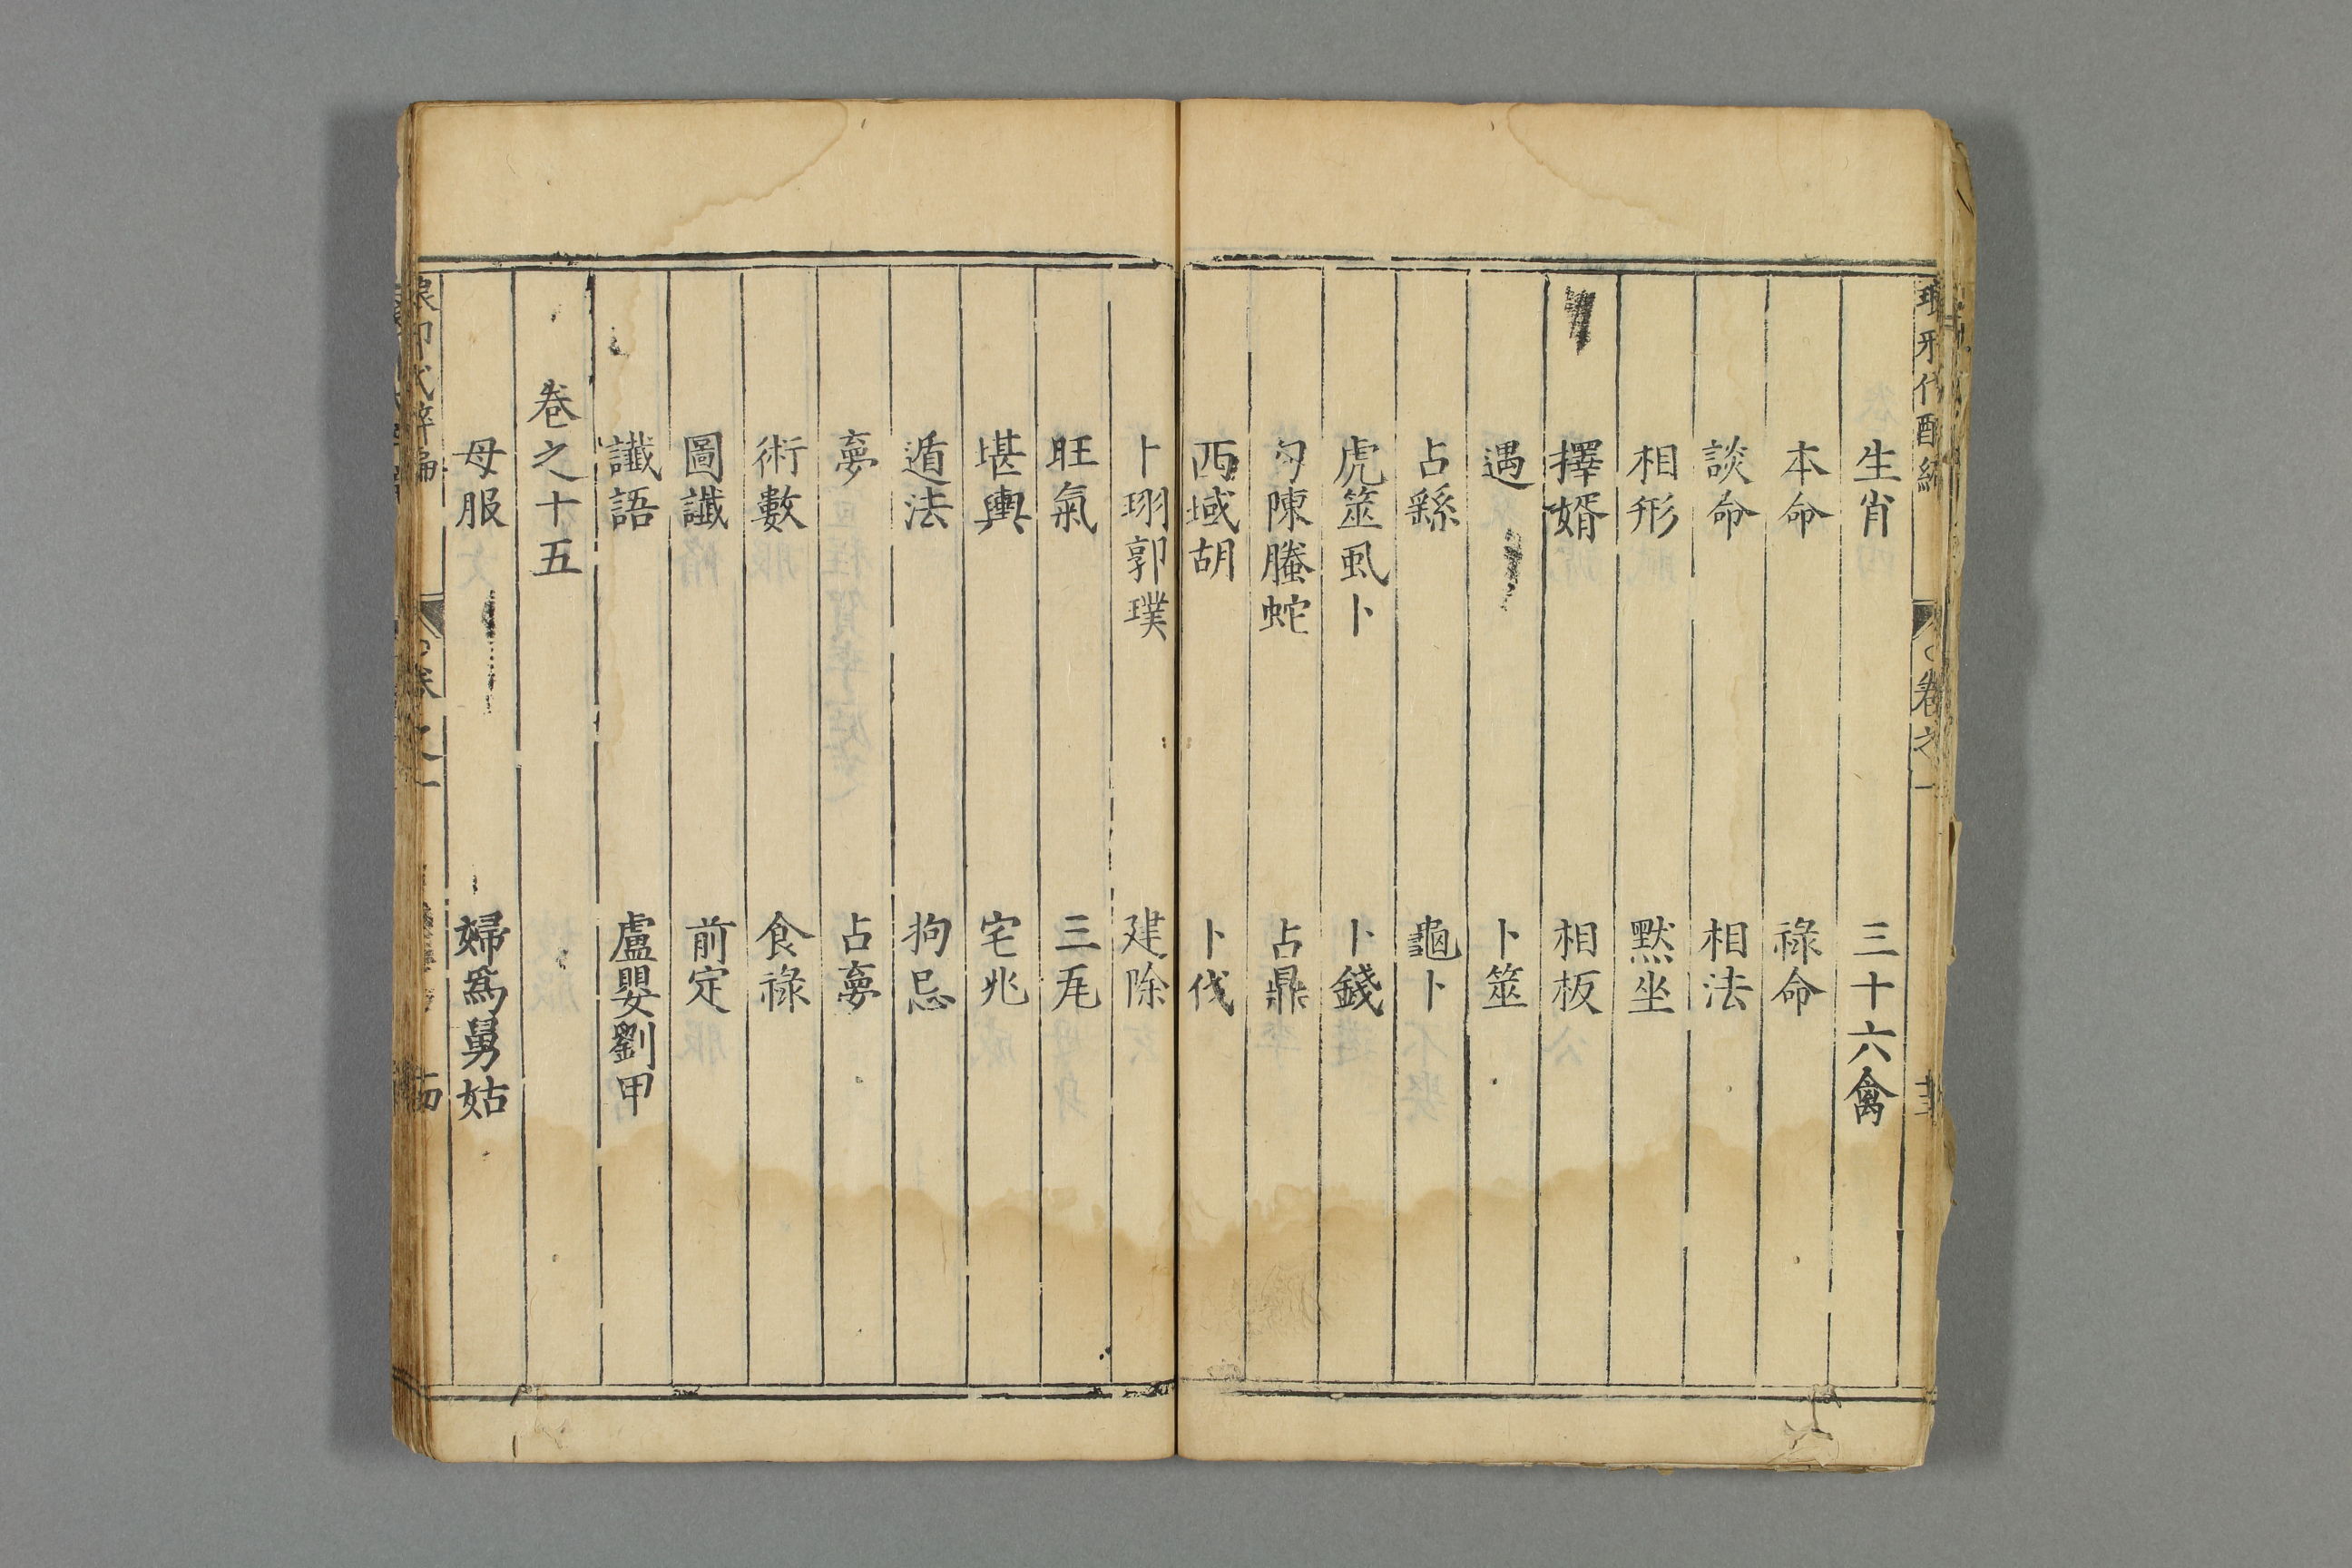 生肖 三十六禽
本命 祿命
談命 相法
相形 默坐
擇婿 相板
遇 卜筮
占繇 龜卜
虎筮虱卜 卜錢
勾陳螣蛇 占鼎
西域胡 卜伐
卜珝郭璞 建除
旺氣 三瓦
堪輿 宅兆
遁法 拘忌
夢 占夢
術數 食祿
圖讖 前定
讖語 盧嬰劉甲
卷之十五
母服 婦爲舅姑
卷之一